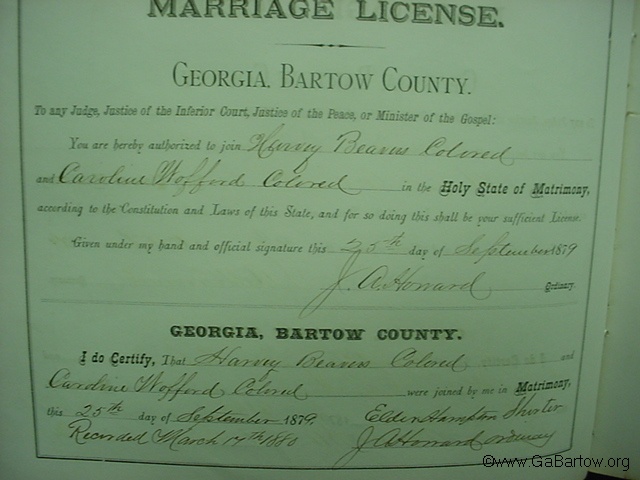 MARRIAGE LICENSE.
GEORGIA, BARTOW COUNTY.
To any Judge, Justice of the Inferior Court, Justice of the Peace, or Minister of the Gospel:
You are hereby authorized to join Harvey Beavers Colored
and Caroline Wofford Colored in the Holy State of Matrimony,
according to the Constitution and Laws of this State, and for so doing this shall be your sufficient License.
Given under my hand and official signature this 25th day of September 1879
J. A. Howard Ordinary.
GEORGIA, BARTOW COUNTY.
I do Certify, That Harvey Beavers Colored and
Caroline Wofford Colored were joined by me in Matrimony,
this 25th day of September 1879. Elder Hampton Shorter
Recorded March 17th 1880 J. A. Howard Ordinary
©www.GaBartow.org